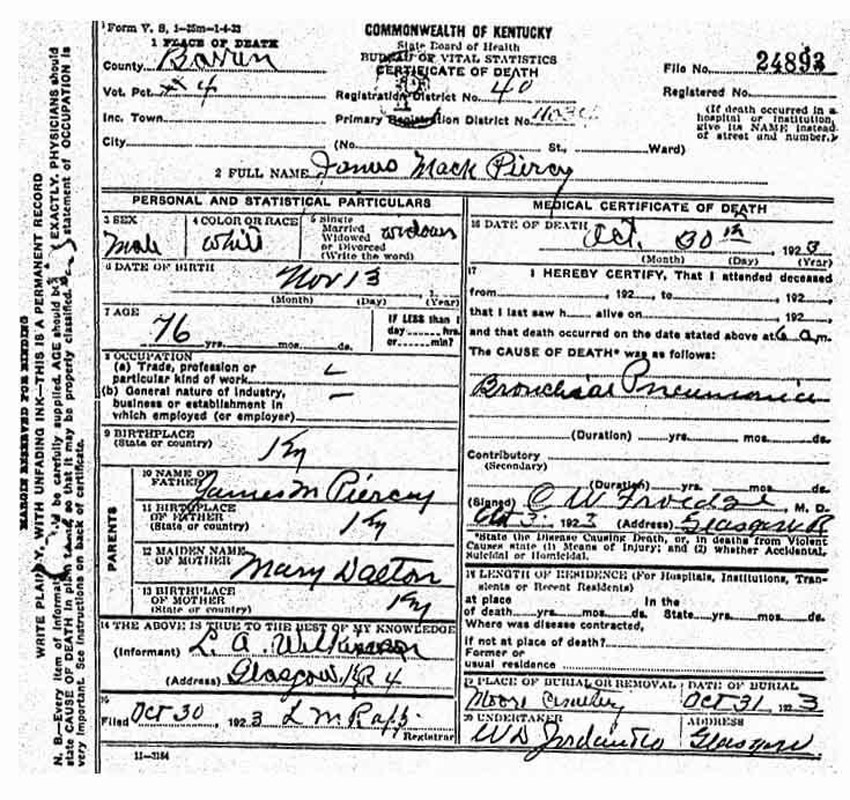 Form V. S. 1-25m-1-4-23
COMMONWEALTH OF KENTUCKY
State Board of Health
BUREAU OF VITAL STATISTICS
CERTIFICATE OF DEATH
1 PLACE OF DEATH
County Barren
Vot. Pct. 4
Inc. Town
City
Registration District No. 40
Primary Registration District No.
(No. St., Ward)
File No. 24893
Registered No.
(If death occurred in a
hospital or institution,
give its NAME instead
of street and number.)
2 FULL NAME James Mack Piercy
PERSONAL AND STATISTICAL PARTICULARS
3 SEX
Male
4 COLOR OR RACE
White
5 Single
Married
Widowed
or Divorced
(Write the word)
widower
6 DATE OF BIRTH
Nov 13
(Month) (Day) (Year)
7 AGE
76 yrs. mos. ds.
IF LESS than 1
day hrs.
or min?
8 OCCUPATION
(a) Trade, profession or
particular kind of work
(b) General nature of industry,
business or establishment in
which employed (or employer)
9 BIRTHPLACE
(State or country)
Ky
PARENTS
10 NAME OF
FATHER
James M Piercy
11 BIRTHPLACE
OF FATHER
(State or country)
Ky
12 MAIDEN NAME
OF MOTHER
Mary Dalton
13 BIRTHPLACE
OF MOTHER
(State or country)
Ky
14 THE ABOVE IS TRUE TO THE BEST OF MY KNOWLEDGE
(Informant) L. A. Wilkinson
(Address) Glasgow Ky R 4
15
Filed Oct 30, 1923 L M
Registrar
11-3184
MEDICAL CERTIFICATE OF DEATH
16 DATE OF DEATH
Oct. 30th, 1923
(Month) (Day) (Year)
17 I HEREBY CERTIFY, That I attended deceased
from , 192 , to , 192 ,
that I last saw h alive on , 192 ,
and that death occurred on the date stated above at 6 a.m.
The CAUSE OF DEATH* was as follows:
Bronchial Pneumonia
(Duration) yrs. mos. ds.
Contributory
(Secondary)
(Duration) yrs. mos. ds.
(Signed) C W Froedge, M. D.
Oct 3 1923 (Address) Glasgow R
*State the Disease Causing Death, or, in deaths from Violent
Causes state (1) Means of Injury; and (2) whether Accidental,
Suicidal or Homicidal.
18 LENGTH OF RESIDENCE (For Hospitals, Institutions, Transients
or Recent Residents)
at place In the
of death yrs. mos. ds. State yrs. mos. ds.
Where was disease contracted,
if not at place of death?
Former or
usual residence
19 PLACE OF BURIAL OR REMOVAL
Moore Cemetery
DATE OF BURIAL
Oct 31, 1923
20 UNDERTAKER
W D Jordan
ADDRESS
Glasgow
MARGIN RESERVED FOR BINDING
WRITE PLAINLY, WITH UNFADING INK—THIS IS A PERMANENT RECORD
N. B.—Every item of information should be carefully supplied. AGE should be EXACTLY. PHYSICIANS should
state CAUSE OF DEATH in plain terms, so that it may be properly classified. statement of OCCUPATION is
very important. See instructions on back of certificate.